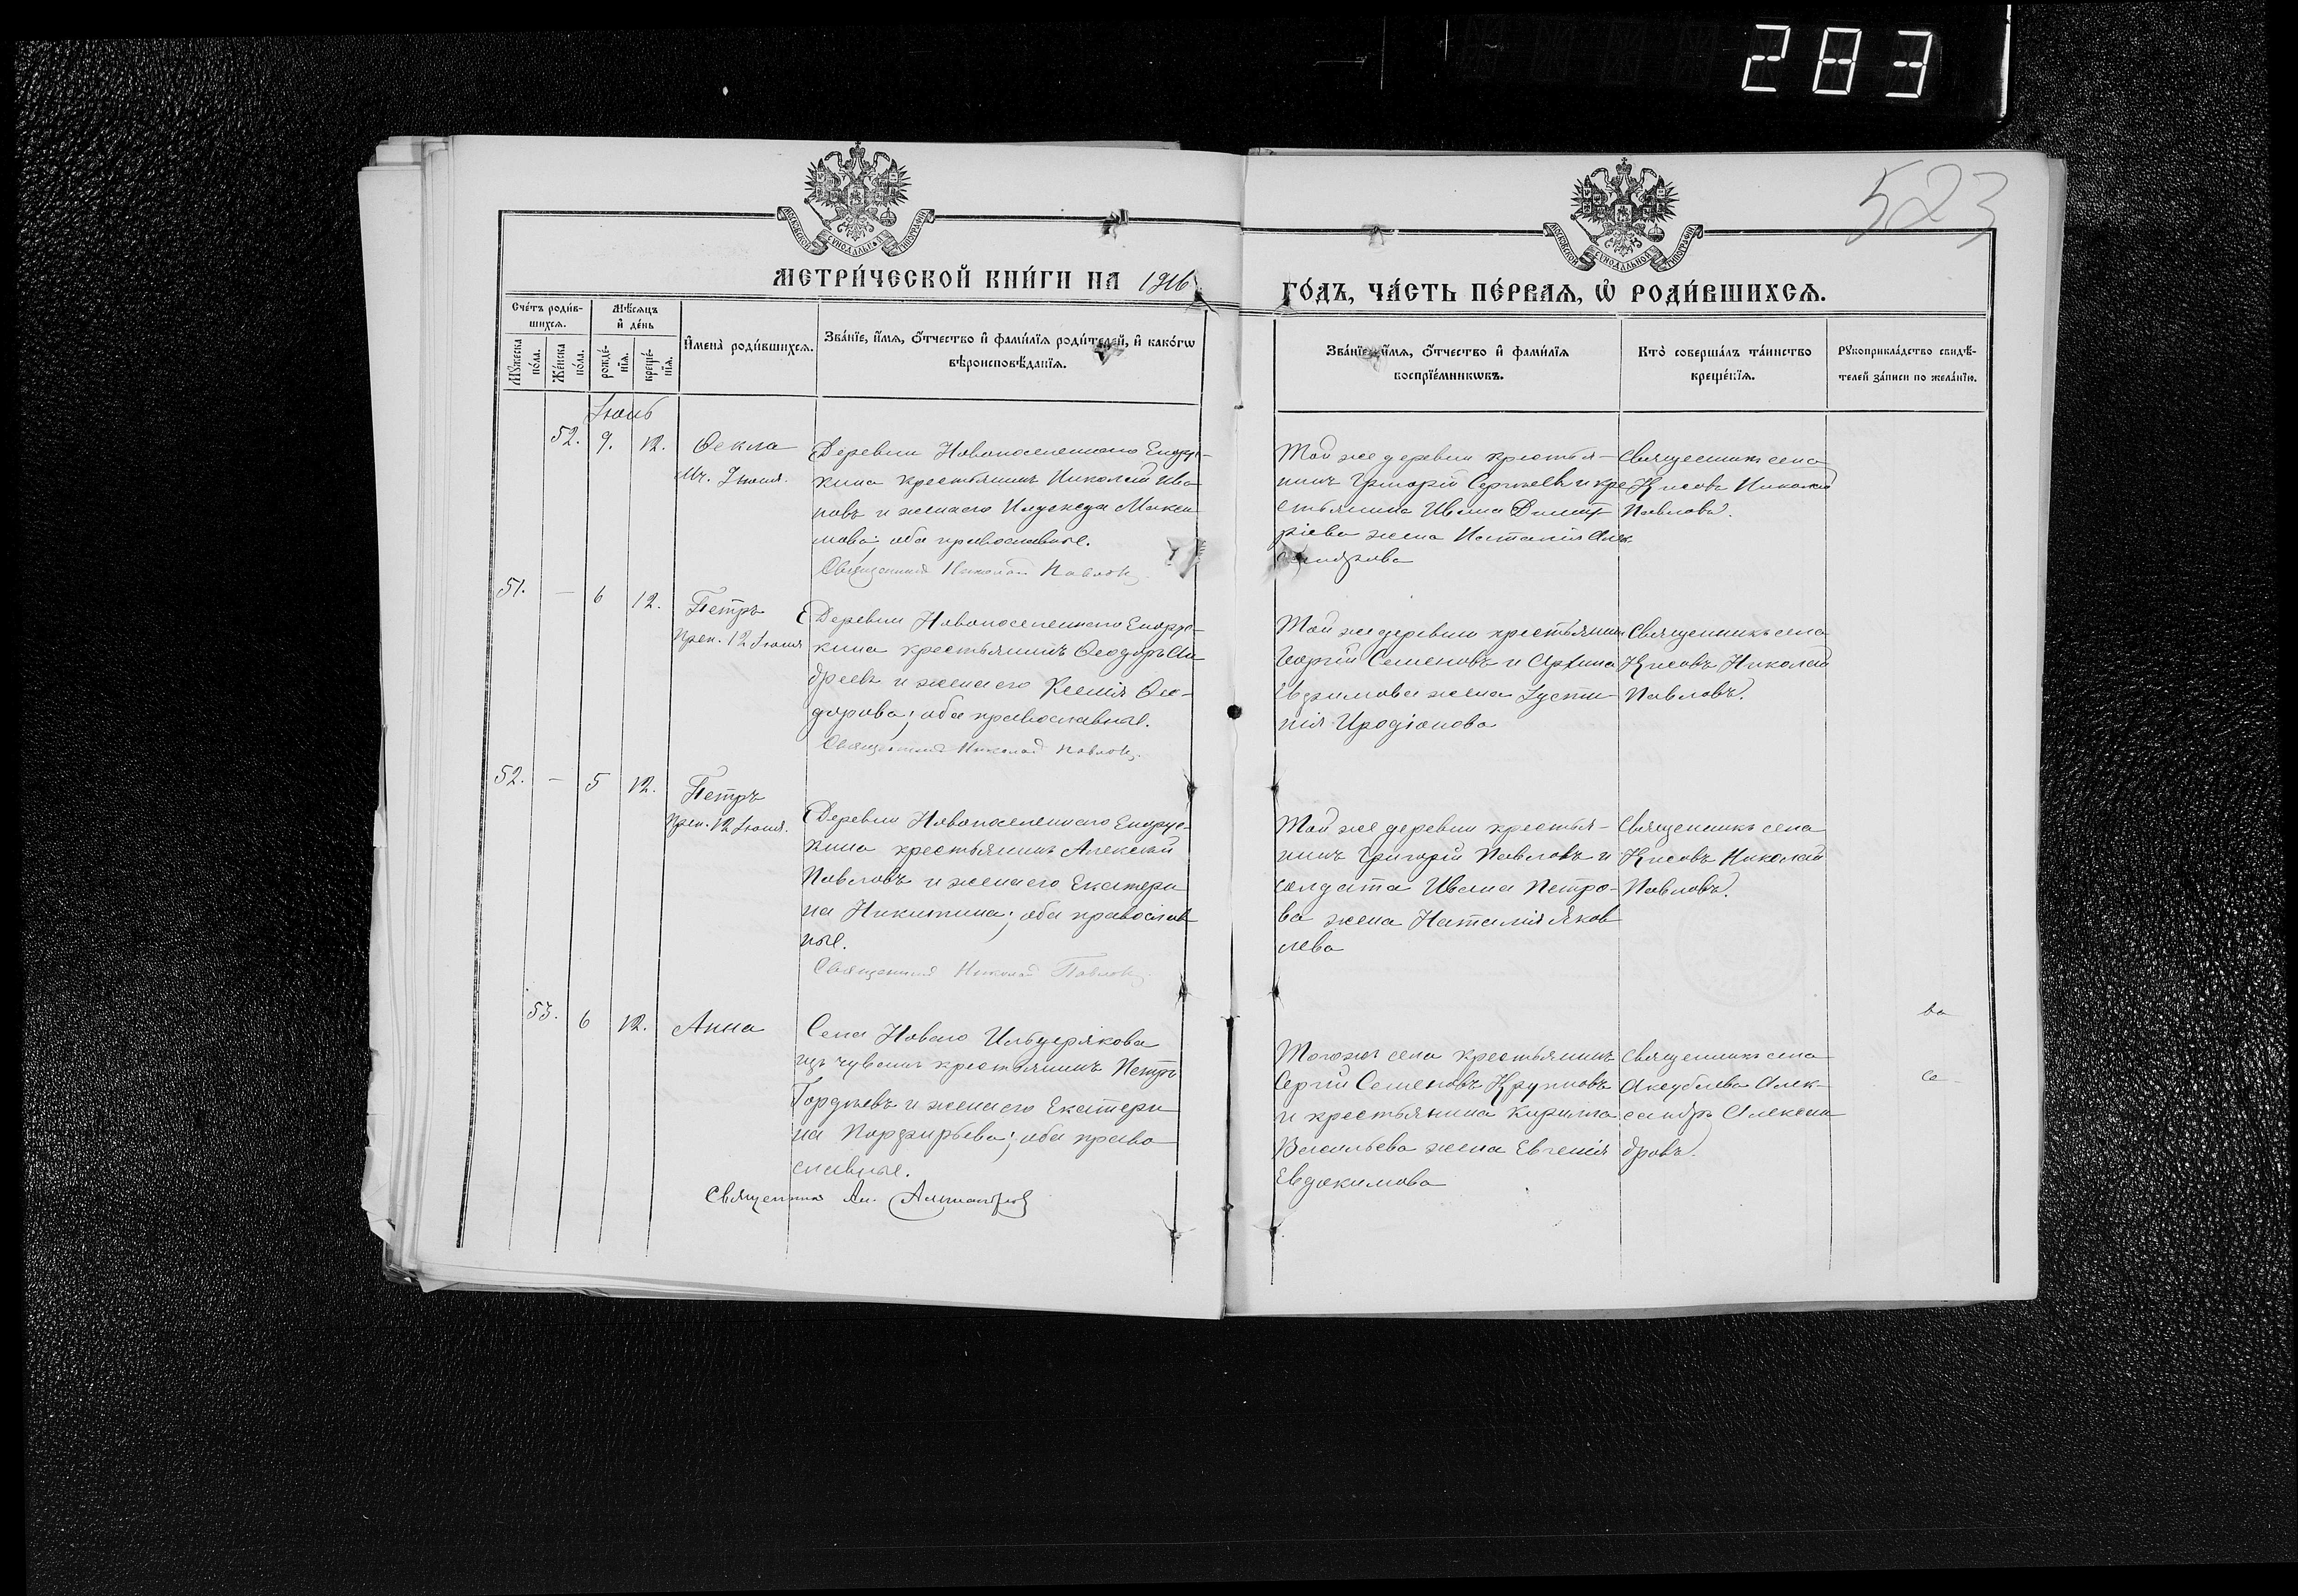 283
523
МОСКОВСКОЙ СѴНОДАЛЬНОЙ ТИПОГРАФІИ
МОСКОВСКОЙ СѴНОДАЛЬНОЙ ТИПОГРАФІИ
МЕТРИ́ЧЕСКОЙ КНИ́ГИ НА 1916
ГО́ДЪ, ЧА́СТЬ ПЕ́РВАЯ, Ѡ РОДИ́ВШИХСЯ.
Сче́тъ роди́в-
шихся.
Мꙋ́жеска
по́ла.
Же́нска
по́ла.
Мѣ́сяцъ
и де́нь
рожде́-
нїя.
креще́-
нїя.
Имена̀ роди́вшихся.
Зва́нїе, и́мя, о́тчество и фами́лїя роди́телей, и како́гѡ
вѣроисповѣ́данїя.
Зва́нїе, и́мя, о́тчество и фами́лїя
воспрїе́мникѡвъ.
Кто̀ соверша́лъ та́инство
креще́нїя.
Рꙋкоприкла́дство свидѣ́-
телей за́писи по жела́нїю.
Іюнь
52. 9. 12. Ѳекла
Мч. 9 Іюня.
Деревни Новопоселеннаго
кина крестьянинъ Николай Ива
новъ и жена его Макси
мова; оба православные.
Священникъ Николай Павловъ.
Той же деревни крестья-
нинъ Григорій Сергѣевъ и кре
стьянина Ивана Димит
ріева жена Наталія Алек
сандрова
Священникъ села
Николай
Павловъ.
51. — 6 12. Петръ
Преп. 12 Іюня
Деревни Новопоселеннаго
кина крестьянинъ Ѳеодоръ Ан
дреевъ и жена его Ксенія Ѳео-
дорова; оба православные.
Священникъ Николай Павловъ.
Той же деревни крестьянинъ
Георгій Семеновъ и
Евѳимова жена Іусти-
нія Иродіонова
Священникъ села
Николай
Павловъ.
52. — 5 12. Петръ
Преп. 12 Іюня.
Деревни Новопоселеннаго
кина крестьянинъ Алексѣй
Павловъ и жена его Екатери
на Никитина; оба православ
ные.
Священникъ Николай Павловъ.
Той же деревни крестья-
нинъ Григорій Павловъ и
солдата Ивана Петро-
ва жена Наталія Яков
лева
Священникъ села
Николай
Павловъ.
53. 6 12. Анна
Села Новаго Ильдерякова
изъ чувашъ крестьянинъ Петръ
Гордѣевъ и жена его Екатери
на Порфирьева; оба право
славные.
Священникъ Ал. Александровъ
Того же села крестьянинъ
Сергій Семеновъ Крупновъ
и крестьянина Кирилла
Васильева жена Евгенія
Евдокимова
Священникъ села
Аксубаева Алек
сандръ Алексан
дровъ.
ва
са